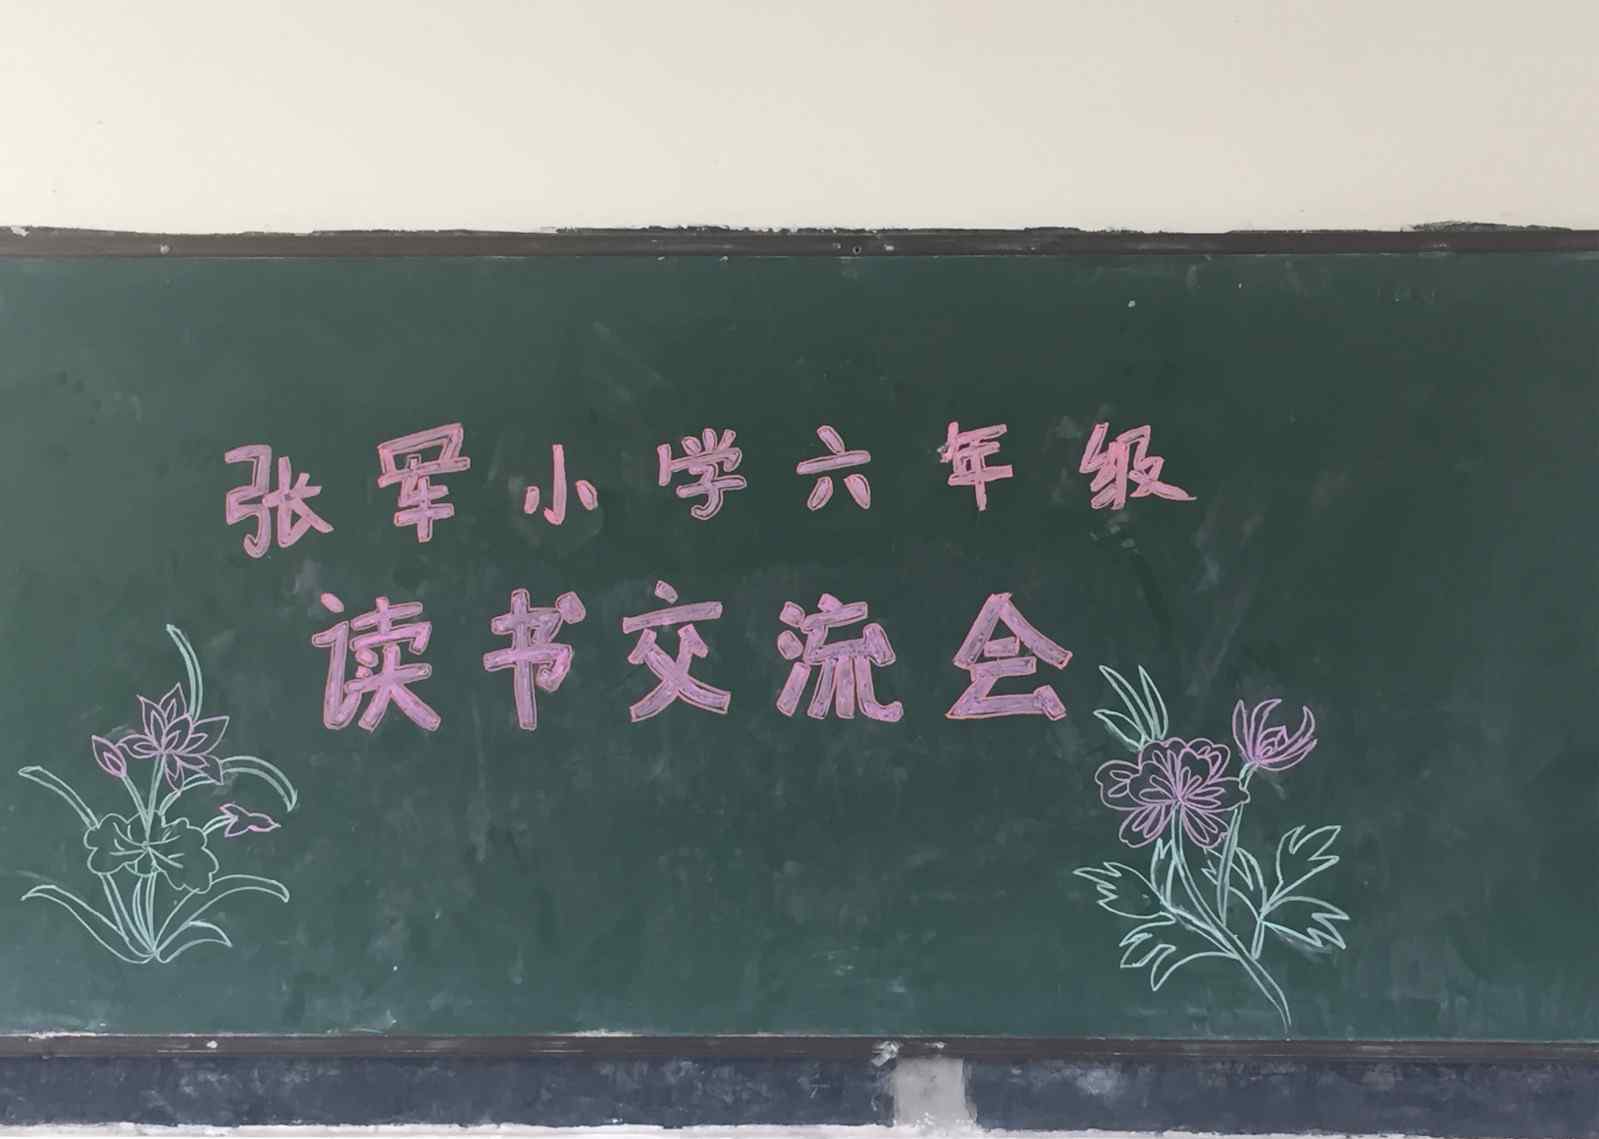 张军小学六年级
读书交流会